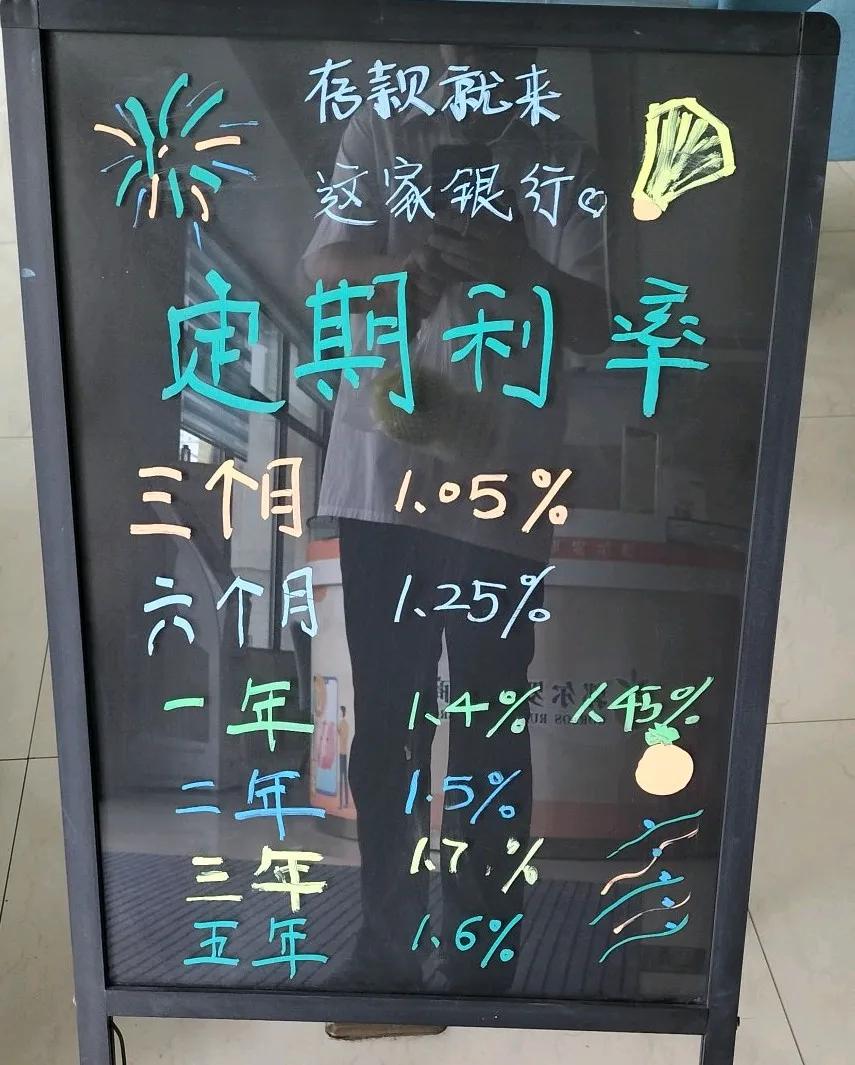 存款就来
这家银行。
定期利率
三个月 1.05%
六个月 1.25%
一年 1.4% 1.45%
二年 1.5%
三年 1.7%
五年 1.6%